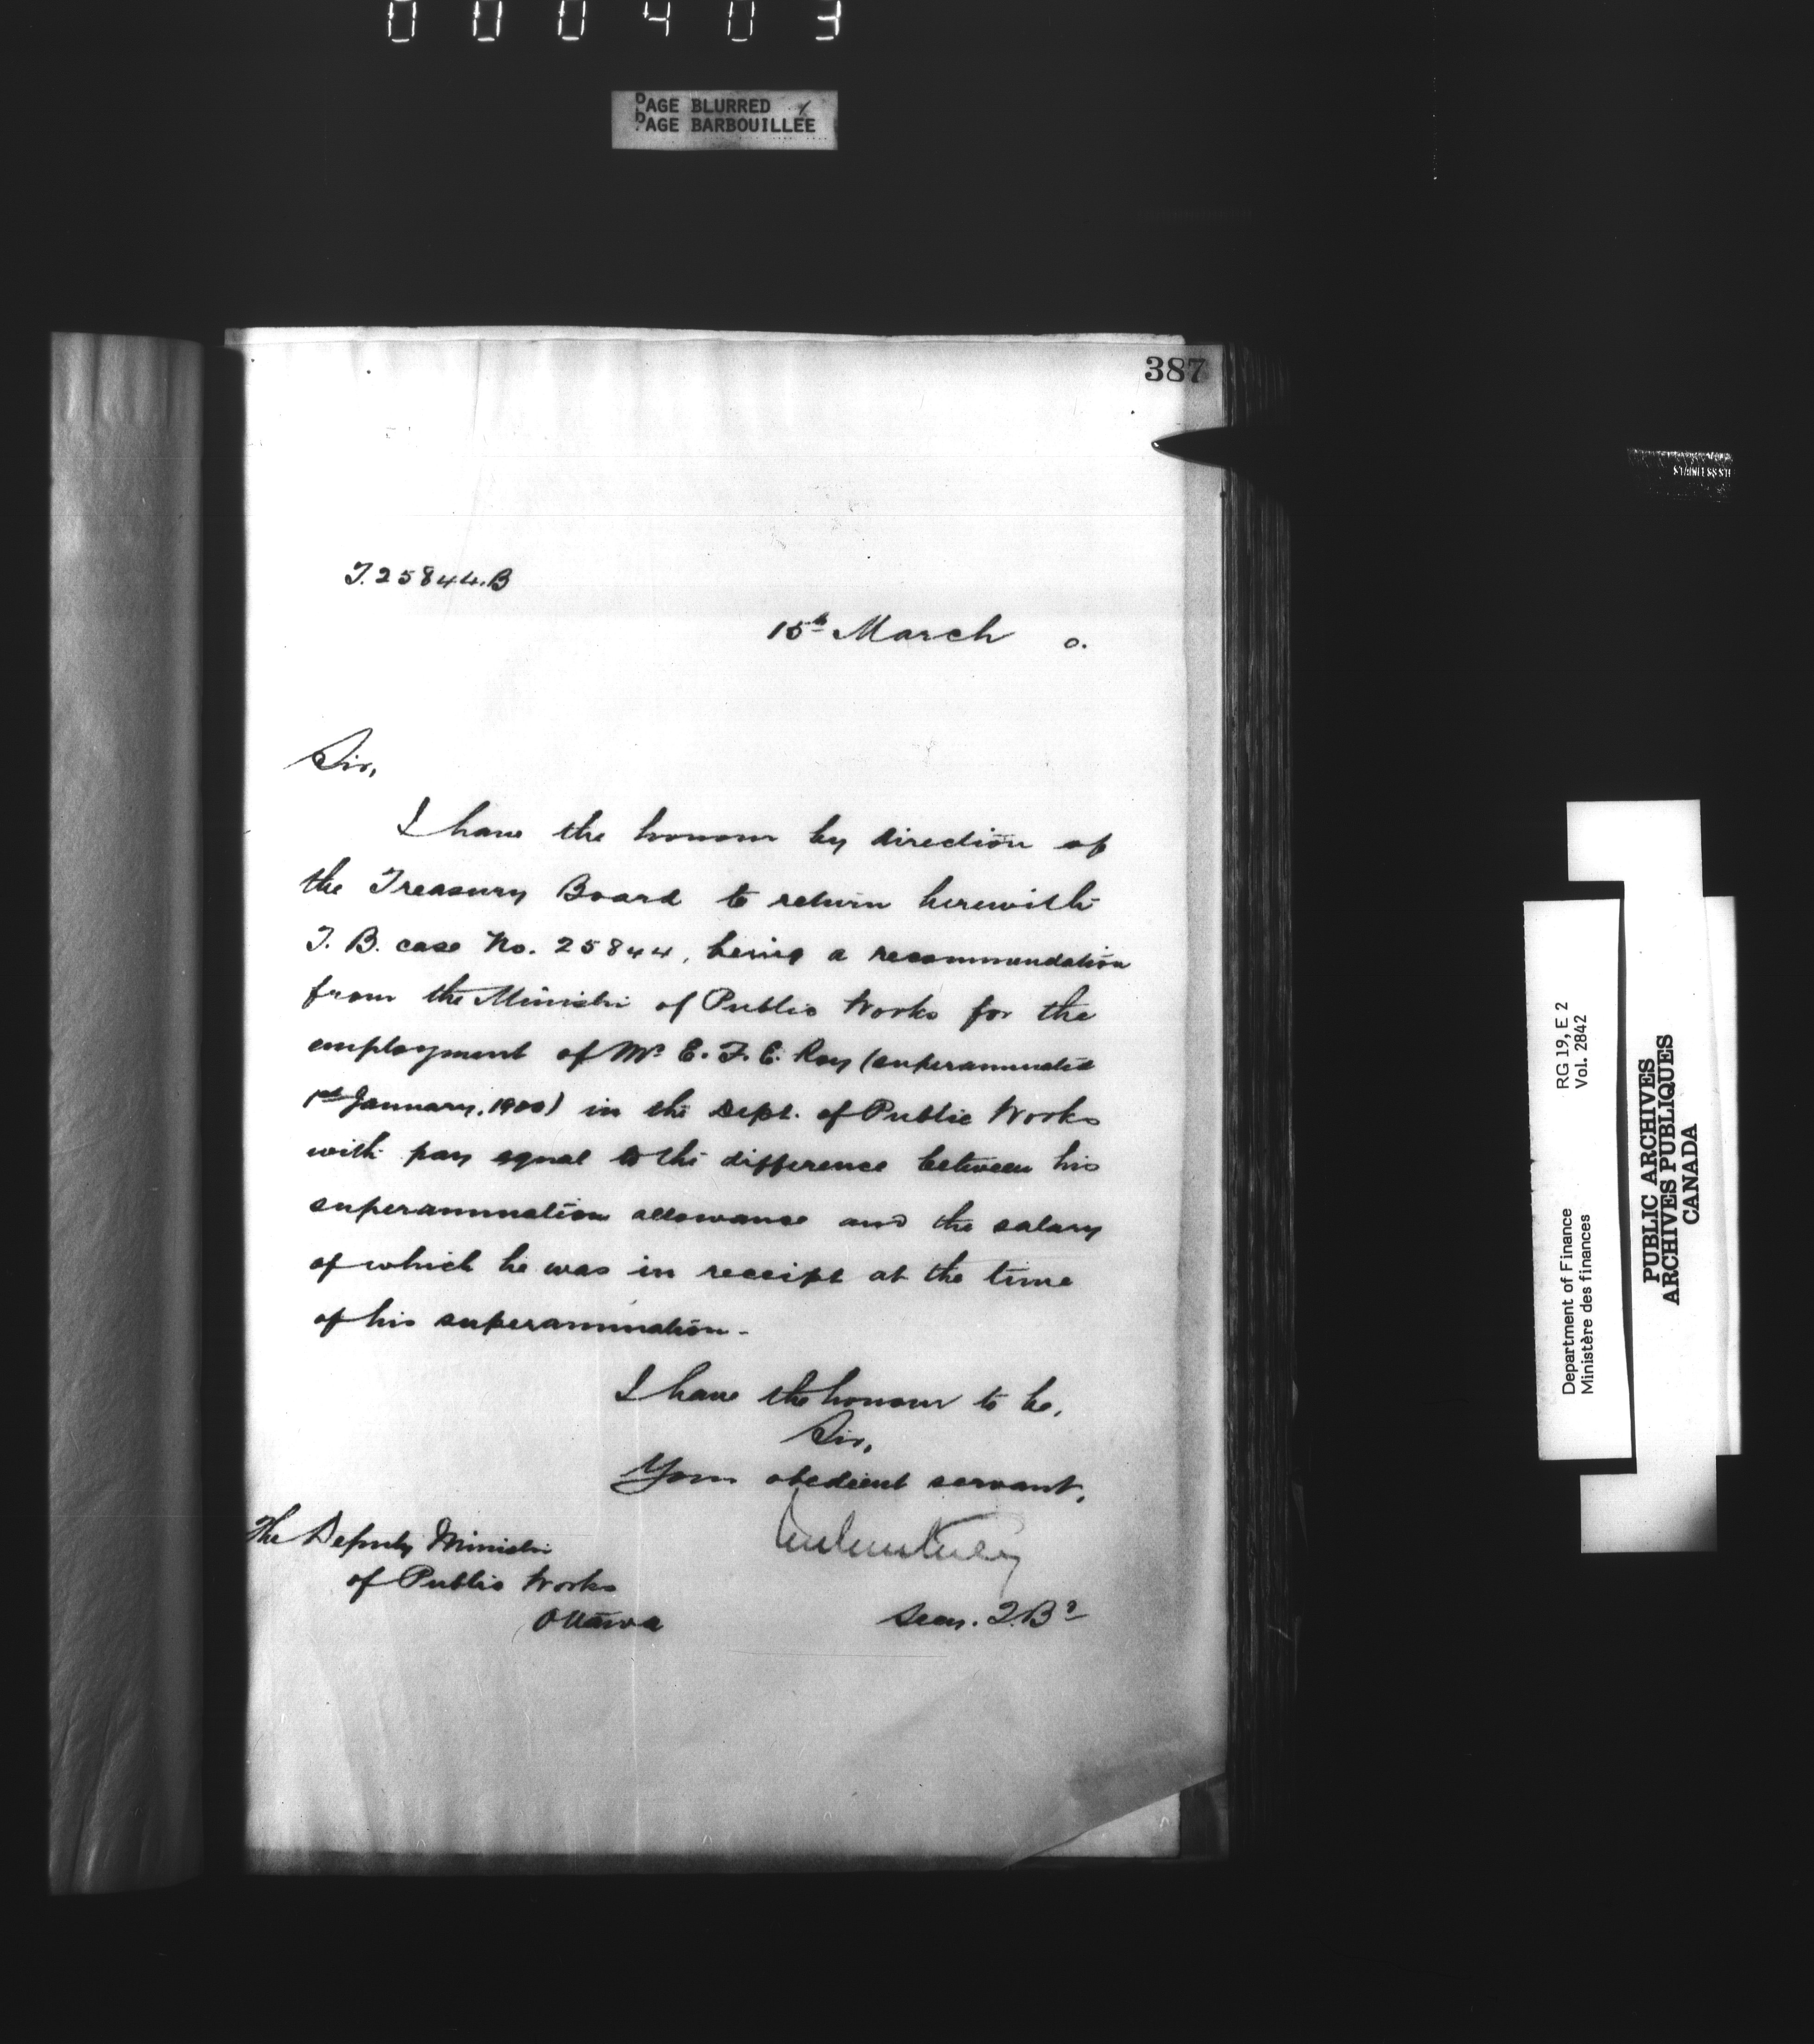 000403
PAGE BLURRED
PAGE BARBOUILLÉE
387
T. 25844.B
15th March 0.
Sir,
I have the honour by direction of
the Treasury Board to return herewith
T. B. case No. 25844, being a recommendation
from the Minister of Public Works for the
employment of Mr E. F. E. Roy (superannuated
1st January, 1900) in the Dept. of Public Works
with pay equal to the difference between his
superannuation allowance and the salary
of which he was in receipt at the time
of his superannuation.
I have the honour to be,
Sir,
Your obedient servant,
The Deputy Minister
of Public Works
Ottawa
Secy. T. Bd
Department of Finance RG 19, E 2
Ministère des finances Vol. 2842
PUBLIC ARCHIVES
ARCHIVES PUBLIQUES
CANADA